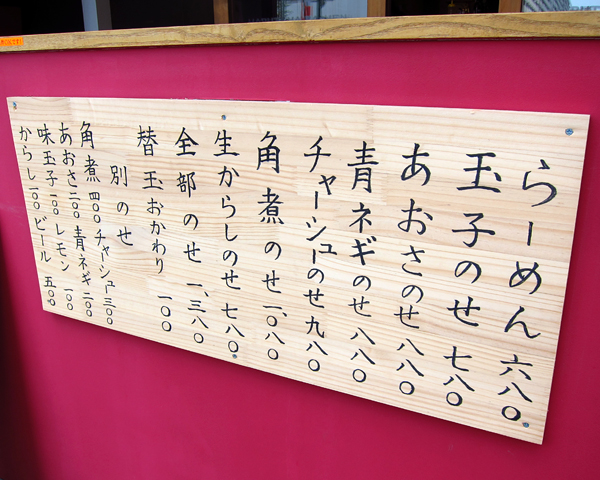 らーめん 六八〇
玉子のせ 七八〇
あおさのせ 八八〇
青ネギのせ 八八〇
チャーシューのせ 九八〇
角煮のせ 一、〇八〇
生からしのせ 七八〇
全部のせ 一、三八〇
替玉おかわり 一〇〇
別のせ
角煮 四〇〇 チャーシュー 三〇〇
あおさ 二〇〇 青ネギ 二〇〇
味玉子 一〇〇 レモン 一〇〇
からし 一〇〇 ビール 五〇〇